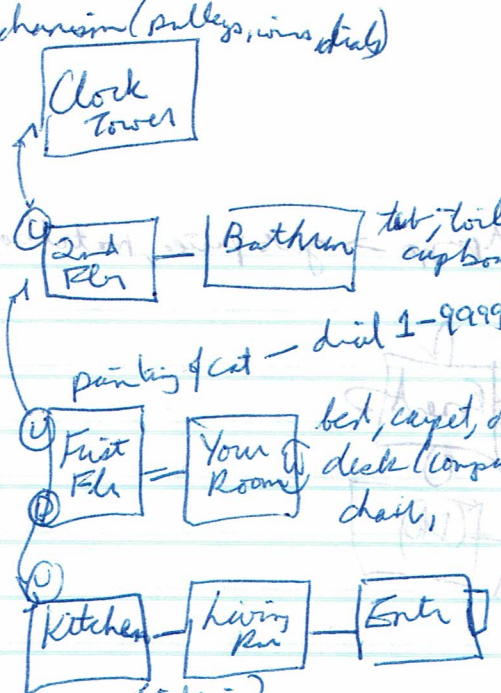 chanism (pulleys, wires, dials)
Clock
Tower
U
2nd
Flr
Bathrm
tub, toil
cupboa
painting of cat — dial 1-9999
U
First
Flr
D
Your
Room
bed, carpet, d
desk (compu
chair,
U
Kitchen
Living
Rm
Entr